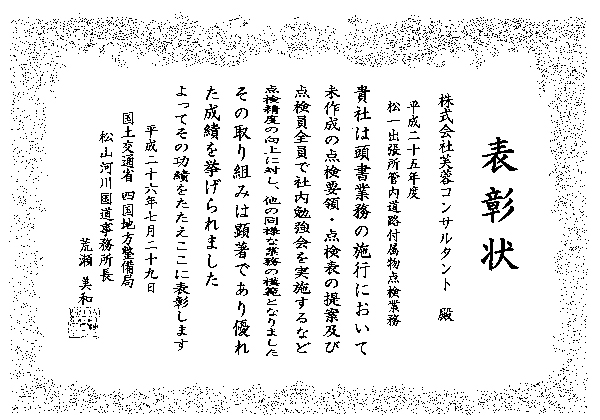 表彰状
株式会社芙蓉コンサルタント 殿
平成二十五年度
松一出張所管内道路付属物点検業務
貴社は頭書業務の施行において
未作成の点検要領・点検表の提案及び
点検員全員で社内勉強会を実施するなど
点検精度の向上に対し、他の同様な業務の模範となりました
その取り組みは顕著であり優れ
た成績を挙げられました
よってその功績をたたえここに表彰します
平成二十六年七月二十九日
国土交通省 四国地方整備局
松山河川国道事務所長
荒瀬 美和